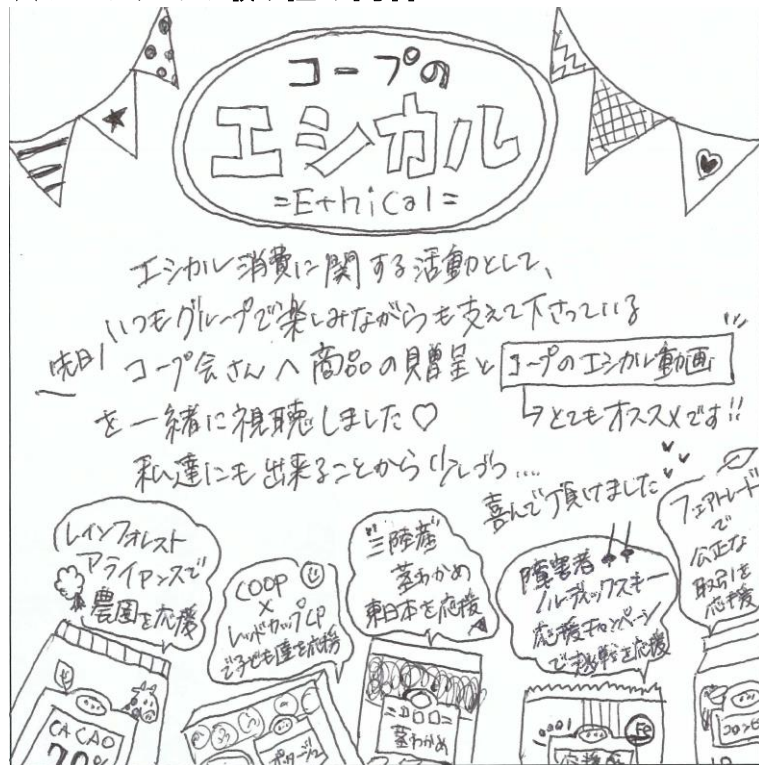 コープの
エシカル
=Ethical=
エシカル消費に関する活動として、
いつもグループで楽しみながらも支えて下さっている
先日
コープ会さんへ商品の贈呈と コープのエシカル動画
を一緒に視聴しました♡
→とてもオススメです!!
私達にも出来ることから少しづつ....
喜んで頂けました
レインフォレスト
アライアンスで
農園を応援
COOP
×
レッドカップCP
で子ども達を応援
"三陸産"
茎わかめ
東日本を応援
障害者
ノルディックスキー
応援キャンペーン
を応援
フェアトレード
で
公正な
取引を
応援
CACAO
70%
ポタージュ
茎わかめ
Fe